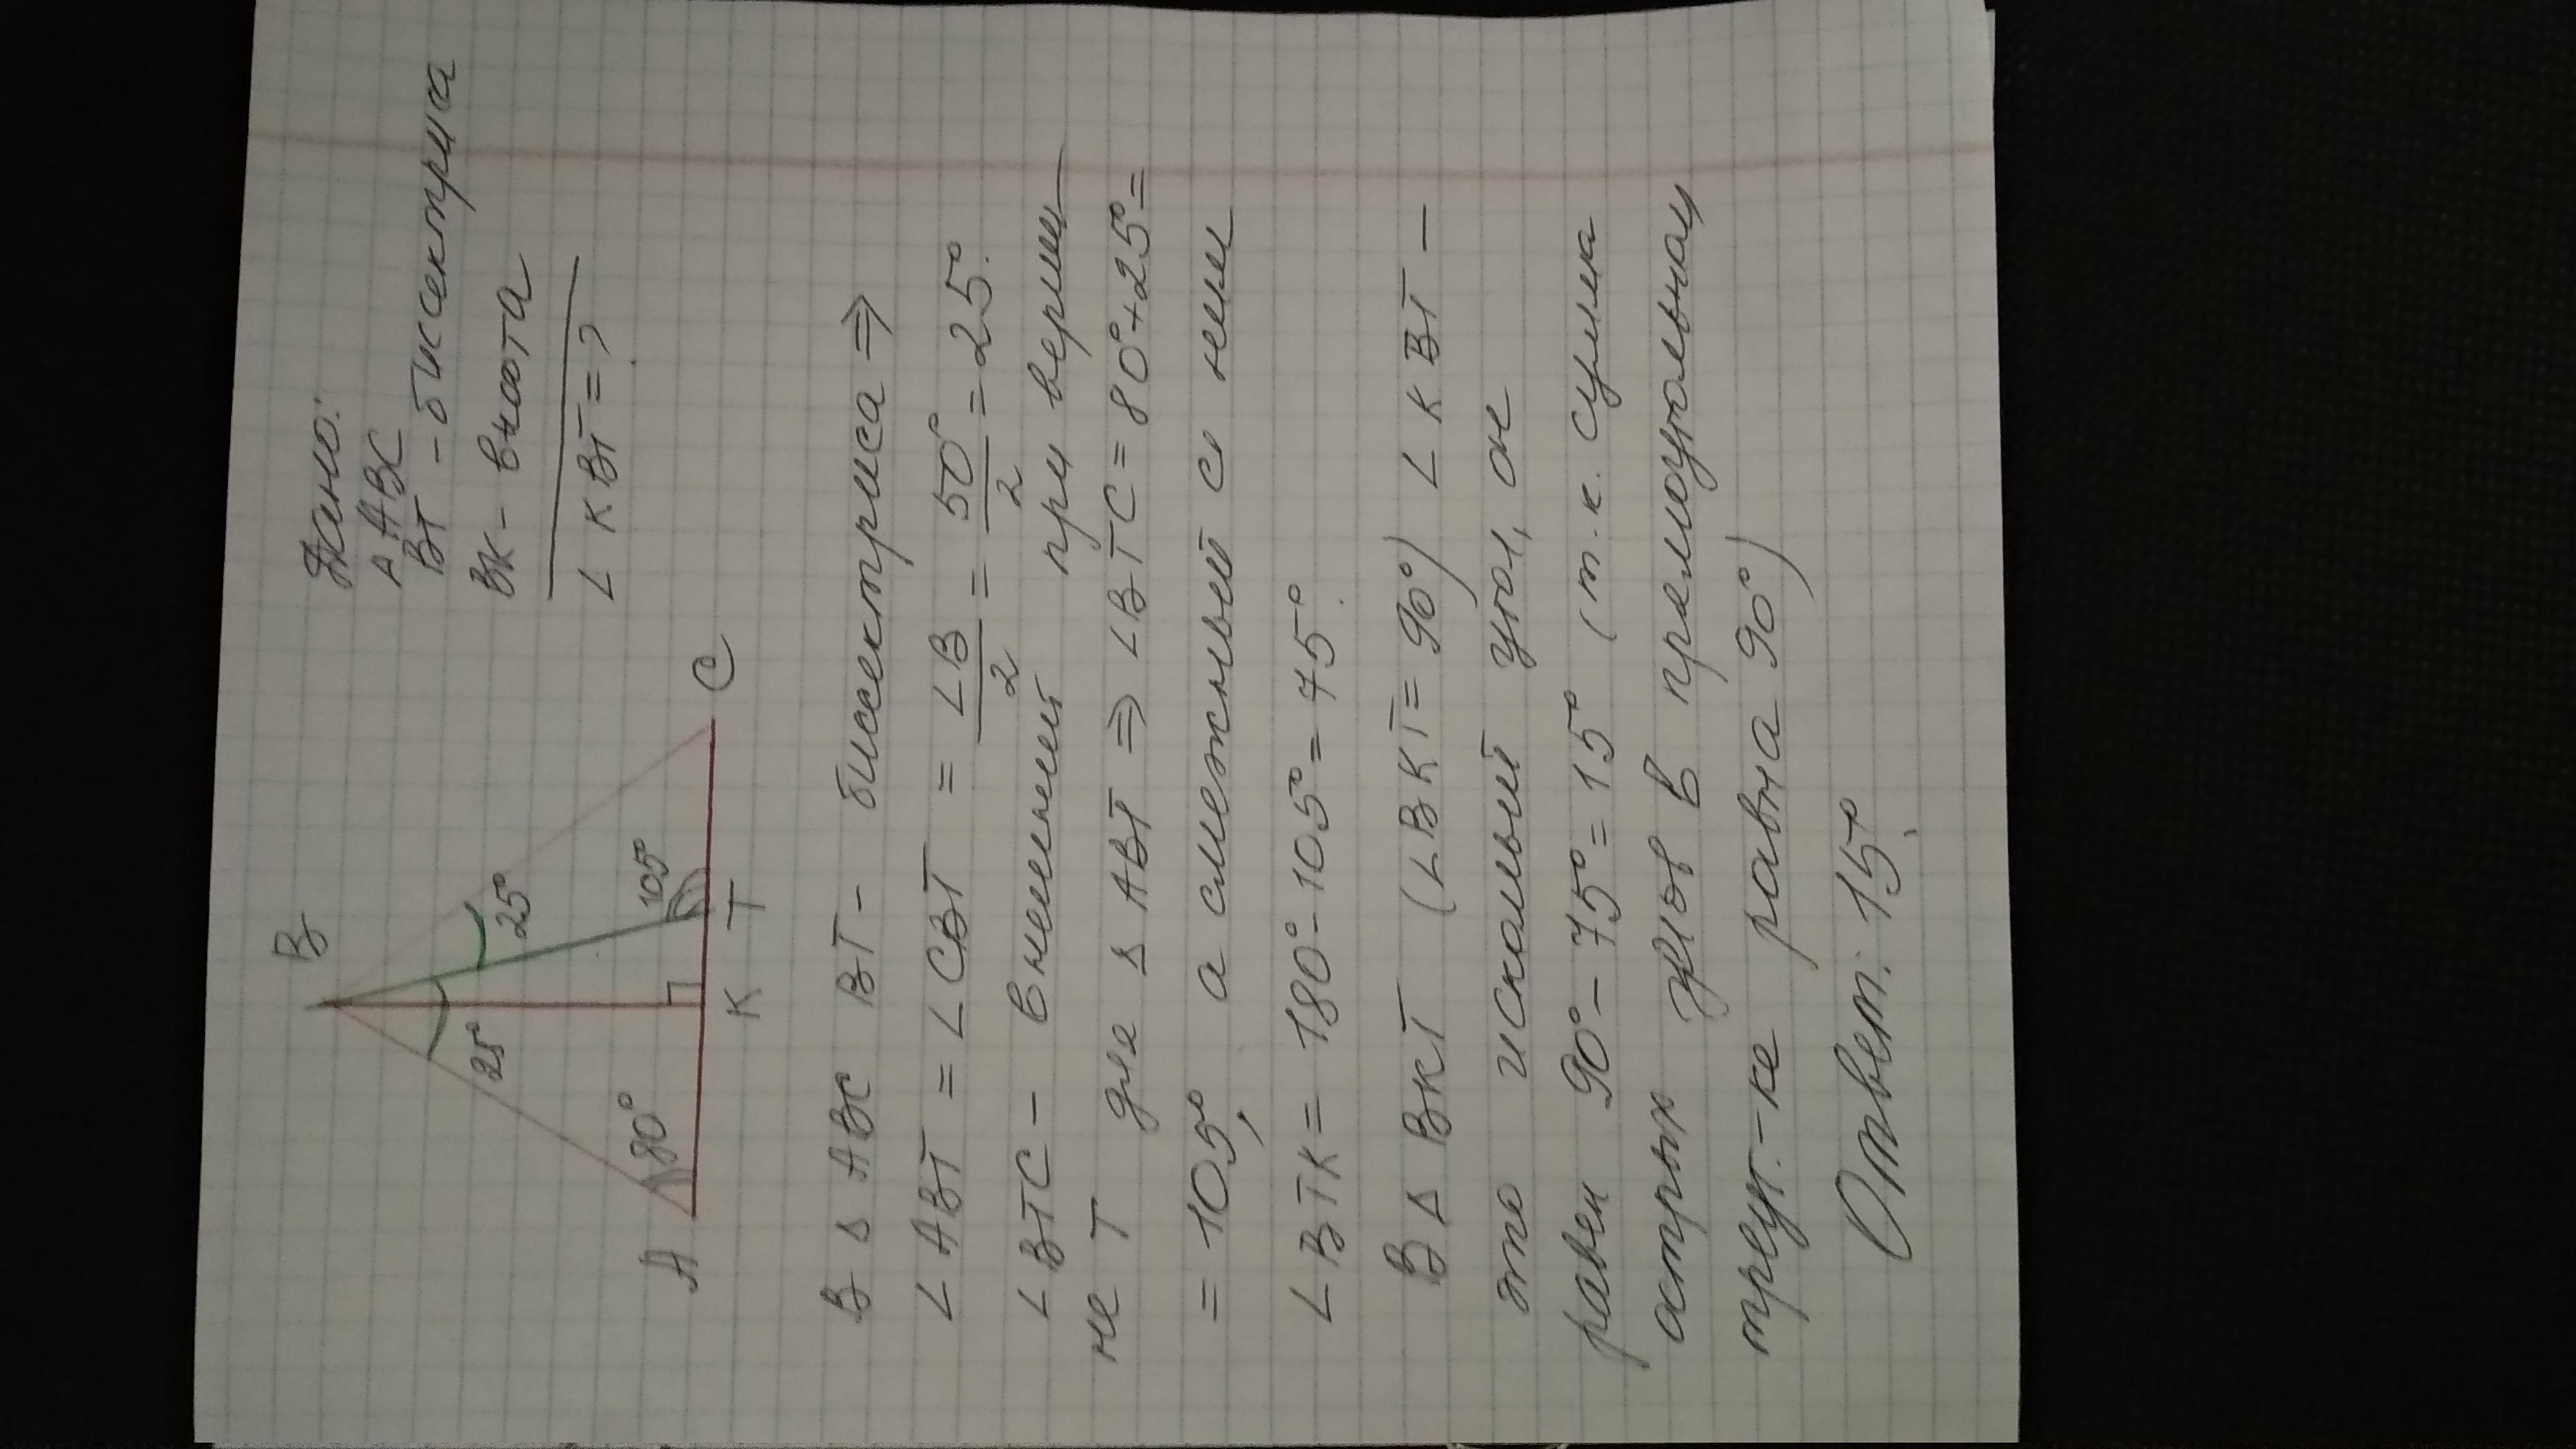 Дано:
△ ABC
BT - биссектриса
BK - высота
∠ KBT = ?
B
25°
25°
80°
105°
A
K
T
C
В △ ABC BT - биссектриса ⇒
∠ ABT = ∠ CBT = ∠B/2 = 50°/2 = 25°.
∠ BTC - внешний при верши-
не T для △ ABT ⇒ ∠BTC = 80°+25°=
= 105°, а смежный с ним
∠ BTK = 180°-105°= 75°.
В △ BKT (∠BKT = 90°) ∠ KBT -
это искомый угол, он
равен 90°- 75°= 15° (т.к. сумма
острых углов в прямоугольном
треуг.-ке равна 90°)
Ответ: 15°.